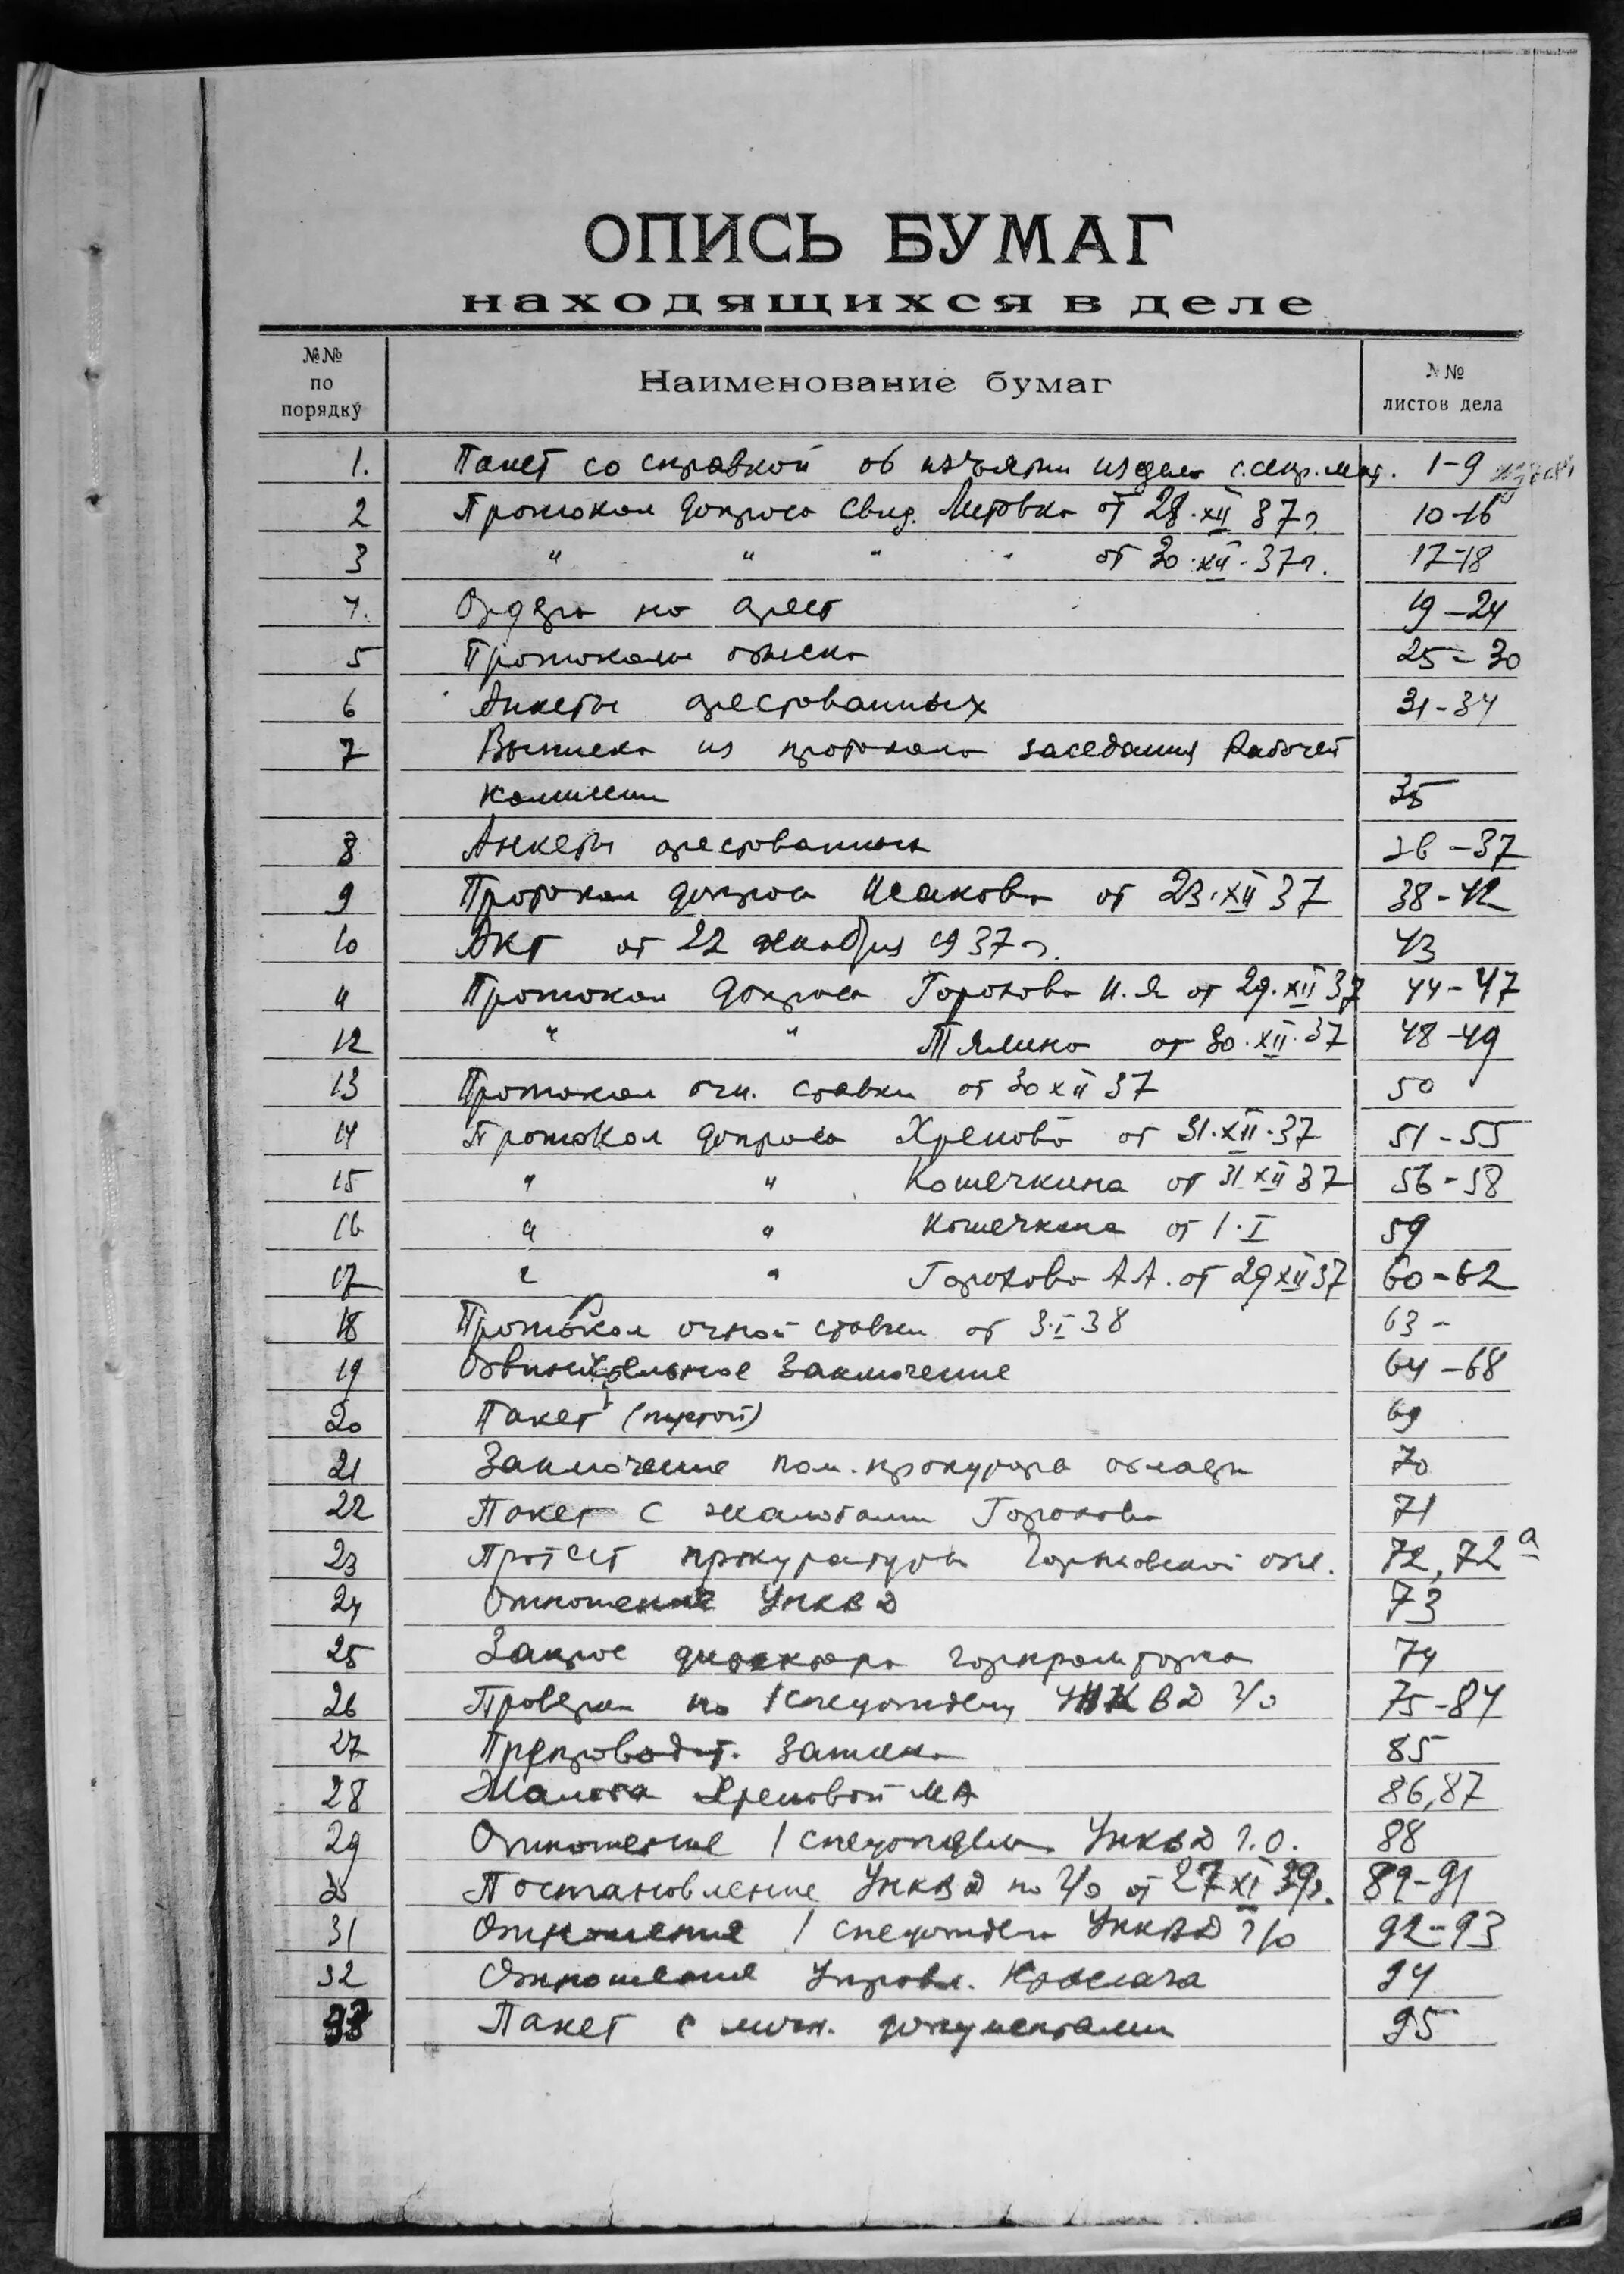 ОПИСЬ БУМАГ
находящихся в деле
№№ по порядку Наименование бумаг №№ листов дела
1. Пакет со справкой об изъятии из дела с.секр.мат. 1-9
2 Протокол допроса свид. от 28.XII 37г. 10-16
3 " " " " от 30.XII-37г. 17-18
4. Ордера на арест 19-24
5 Протоколы обыска 25-30
6 Анкеты арестованных 31-34
7 Выписка из протокола заседания Рабочей
комиссии 35
8 Анкеты арестованных 36-37
9 Протокол допроса Исакова от 23.XII 37 38-42
10 Акт от 22 декабря 1937г. 43
11 Протокол допроса Горохова И.Я от 29.XII 37 44-47
12 " " Тялина от 30.XII.37 48-49
13 Протокол очн. ставки от 30 XII 37 50
14 Протокол допроса Хренова от 31.XII.37 51-55
15 " " Кошечкина от 31 XII 37 56-58
16 " " Кошечкина от 1.I 59
17 " " Горохова А А. от 29 XII 37 60-62
18 Протокол очной ставки от 3.I 38 63-
19 Обвинительное заключение 64-68
20 Пакет (пустой) 69
21 Заключение пом. прокурора области 70
22 Пакет с жалобами Горохова 71
23 Протест прокуратуры Горьковской обл. 72, 72а
24 Отношение УНКВД 73
25 Запрос директора 74
26 Проверка по 1 спецотделу УНКВД г/о 75-84
27 Препроводит. записка 85
28 Жалоба Хреновой МА 86,87
29 Отношение 1 спецотдела УНКВД г.о. 88
30 Постановление УНКВД по г/о от 27 XI 39г. 89-91
31 Отношение 1 спецотдела УНКВД г/о 92-93
32 Отношение Управл. Краслага 94
33 Пакет с личн. документами 95